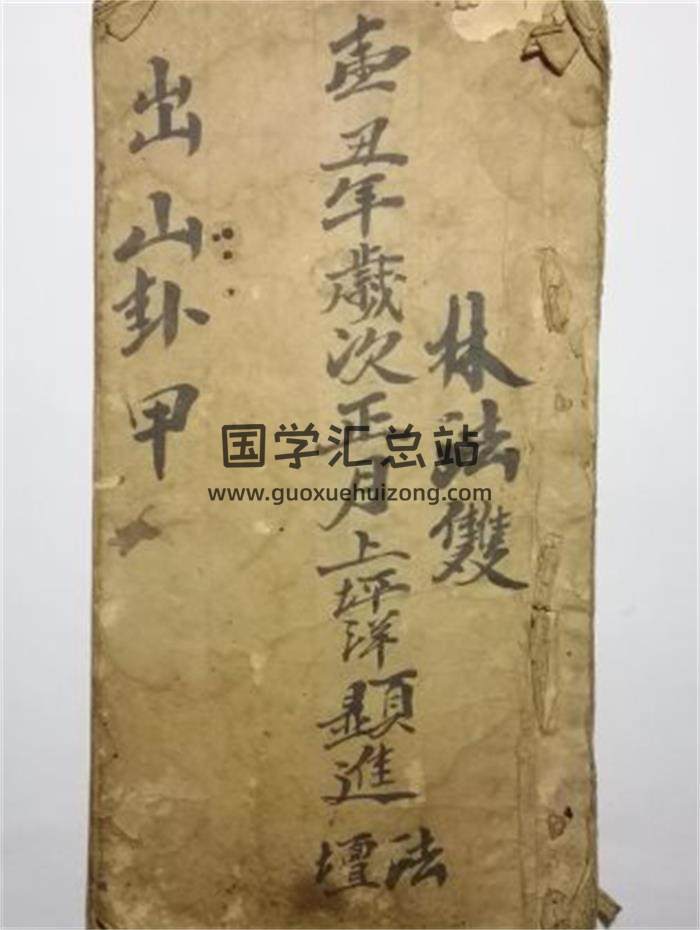 林法雙
丑年歲次正月上坪洋顯進法壇
出山卦甲
国学汇总站
www.guoxuehuizong.com